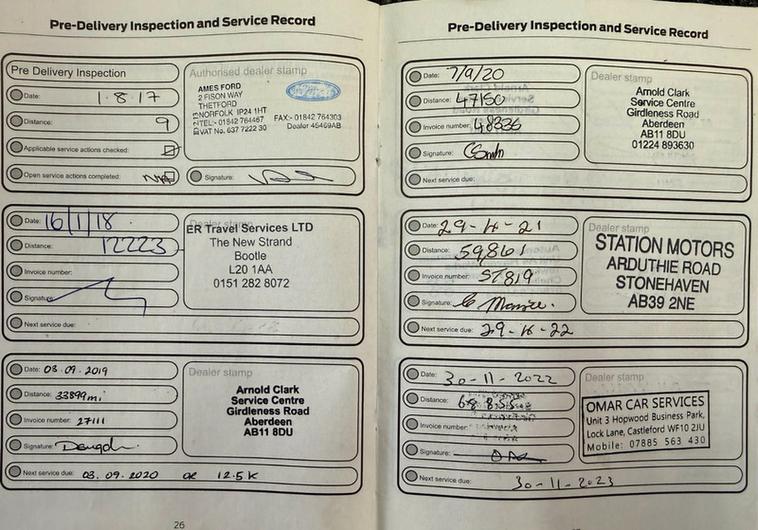 Pre-Delivery Inspection and Service Record
Pre Delivery Inspection
Date: 1.8.17
Distance: 9
Applicable service actions checked:
Open service actions completed:
Authorised dealer stamp
AMES FORD
2 FISON WAY
THETFORD
NORFOLK IP24 1HT
TEL:- 01842 764467 FAX:- 01842 764303
VAT No. 637 7222 30 Dealer 45469AB
Signature:
Date: 16/1/18
Distance: 12223
Invoice number:
Signature:
Next service due:
Dealer stamp
ER Travel Services LTD
The New Strand
Bootle
L20 1AA
0151 282 8072
Date: 03.09.2019
Distance: 33899mi
Invoice number: 27111
Signature:
Next service due: 03.09.2020 or 12.5K
Dealer stamp
Arnold Clark
Service Centre
Girdleness Road
Aberdeen
AB11 8DU
26
Pre-Delivery Inspection and Service Record
Date: 7/9/20
Distance: 47150
Invoice number: 48336
Signature:
Next service due:
Dealer stamp
Arnold Clark
Service Centre
Girdleness Road
Aberdeen
AB11 8DU
01224 893630
Date: 29-4-21
Distance: 59861
Invoice number: 57819
Signature:
Next service due: 29-4-22
Dealer stamp
STATION MOTORS
ARDUTHIE ROAD
STONEHAVEN
AB39 2NE
Date: 30-11-2022
Distance:
Invoice number:
Signature:
Next service due: 30-11-2023
Dealer stamp
OMAR CAR SERVICES
Unit 3 Hopwood Business Park,
Lock Lane, Castleford WF10 2JU
Mobile: 07885 563 430